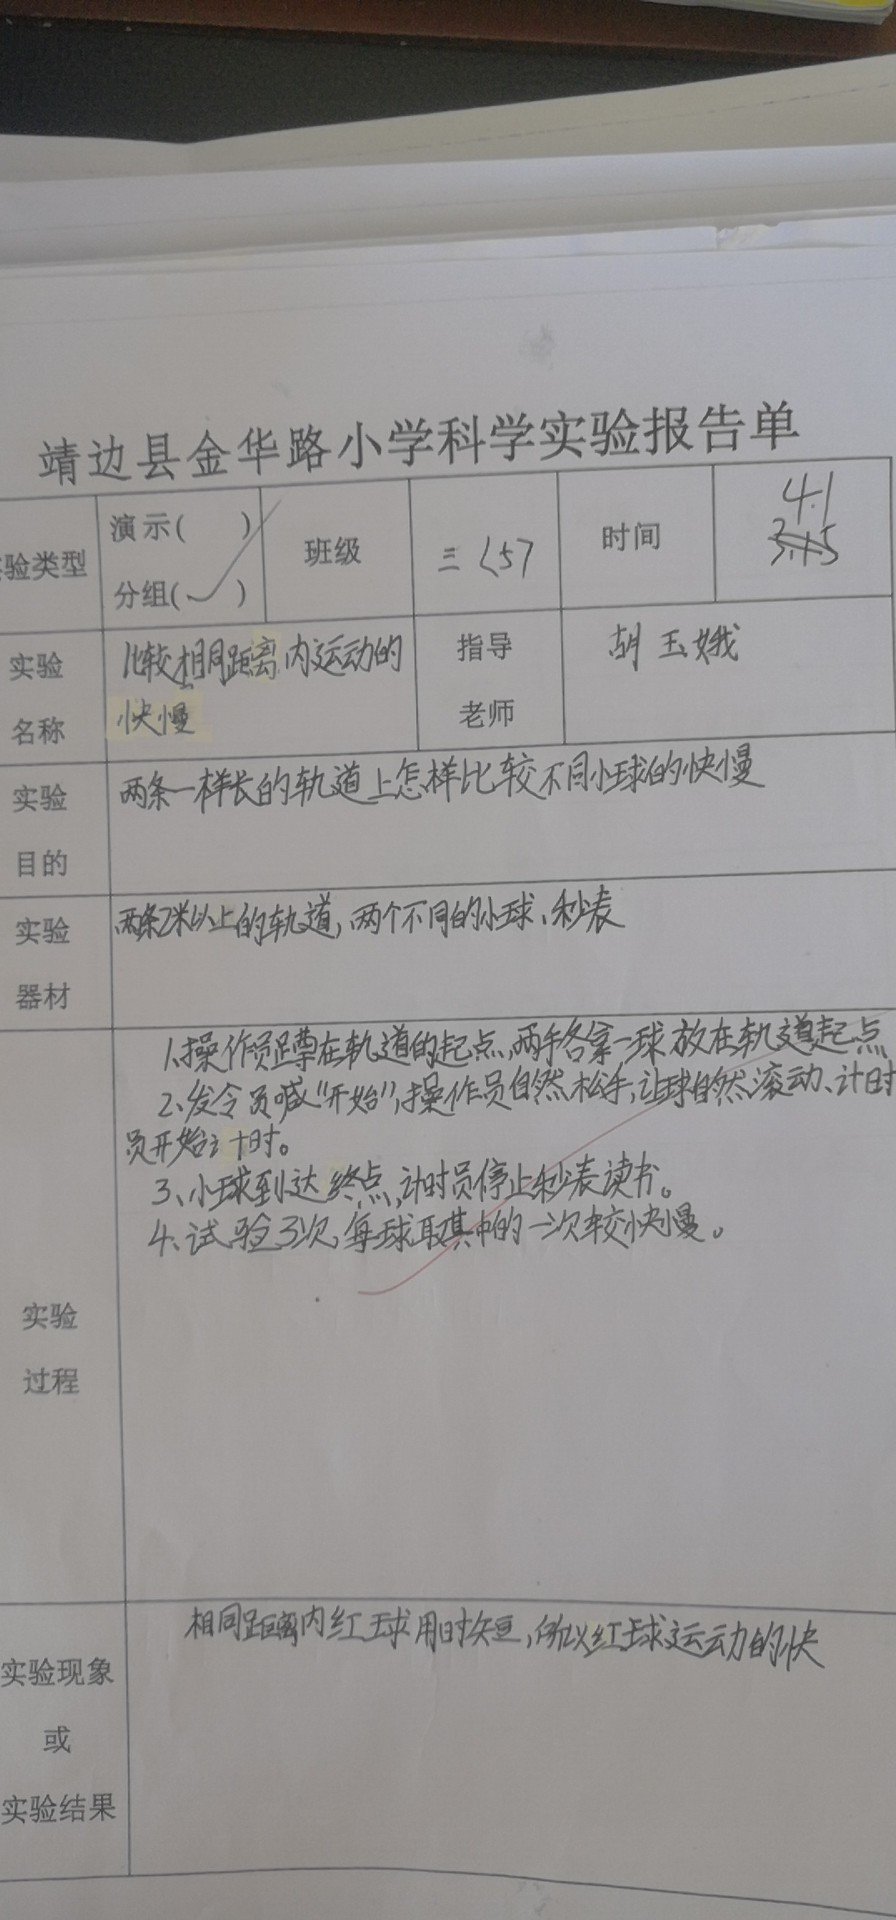 靖边县金华路小学科学实验报告单
验类型
演示( )
分组(✓)
班级
三〈5〉
时间
4.1
3.15
实验
名称
比较相同距离内运动的
快慢
指导
老师
胡玉娥
实验
目的
两条一样长的轨道上怎样比较不同小球的快慢
实验
器材
两条2米以上的轨道,两个不同的小球、秒表
实验
过程
1、操作员蹲在轨道的起点,两手各拿一球放在轨道起点
2、发令员喊"开始",操作员自然松手,让球自然滚动、计时
员开始计时。
3、小球到达终点,计时员停止秒表读书。
4、试验3次,每球取其中的一次较快慢。
实验现象
或
实验结果
相同距离内红球用时短,所以红球运动的快